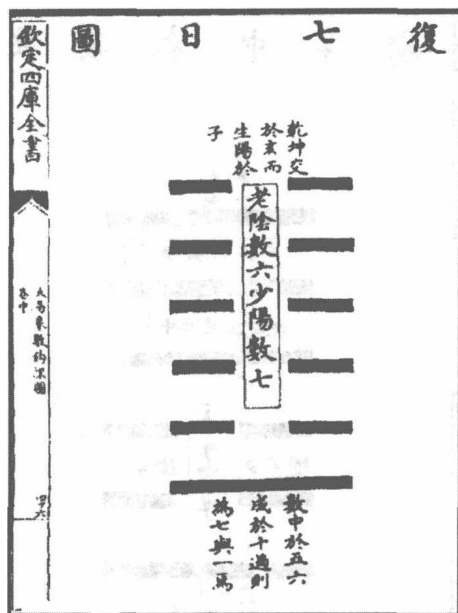 復七日圖
乾坤交
於亥而
生陽於
子
老陰數六少陽數七
數中於五六
成於十過則
為七與一焉
欽定四庫全書
大易象數鈎深圖
卷中
四六